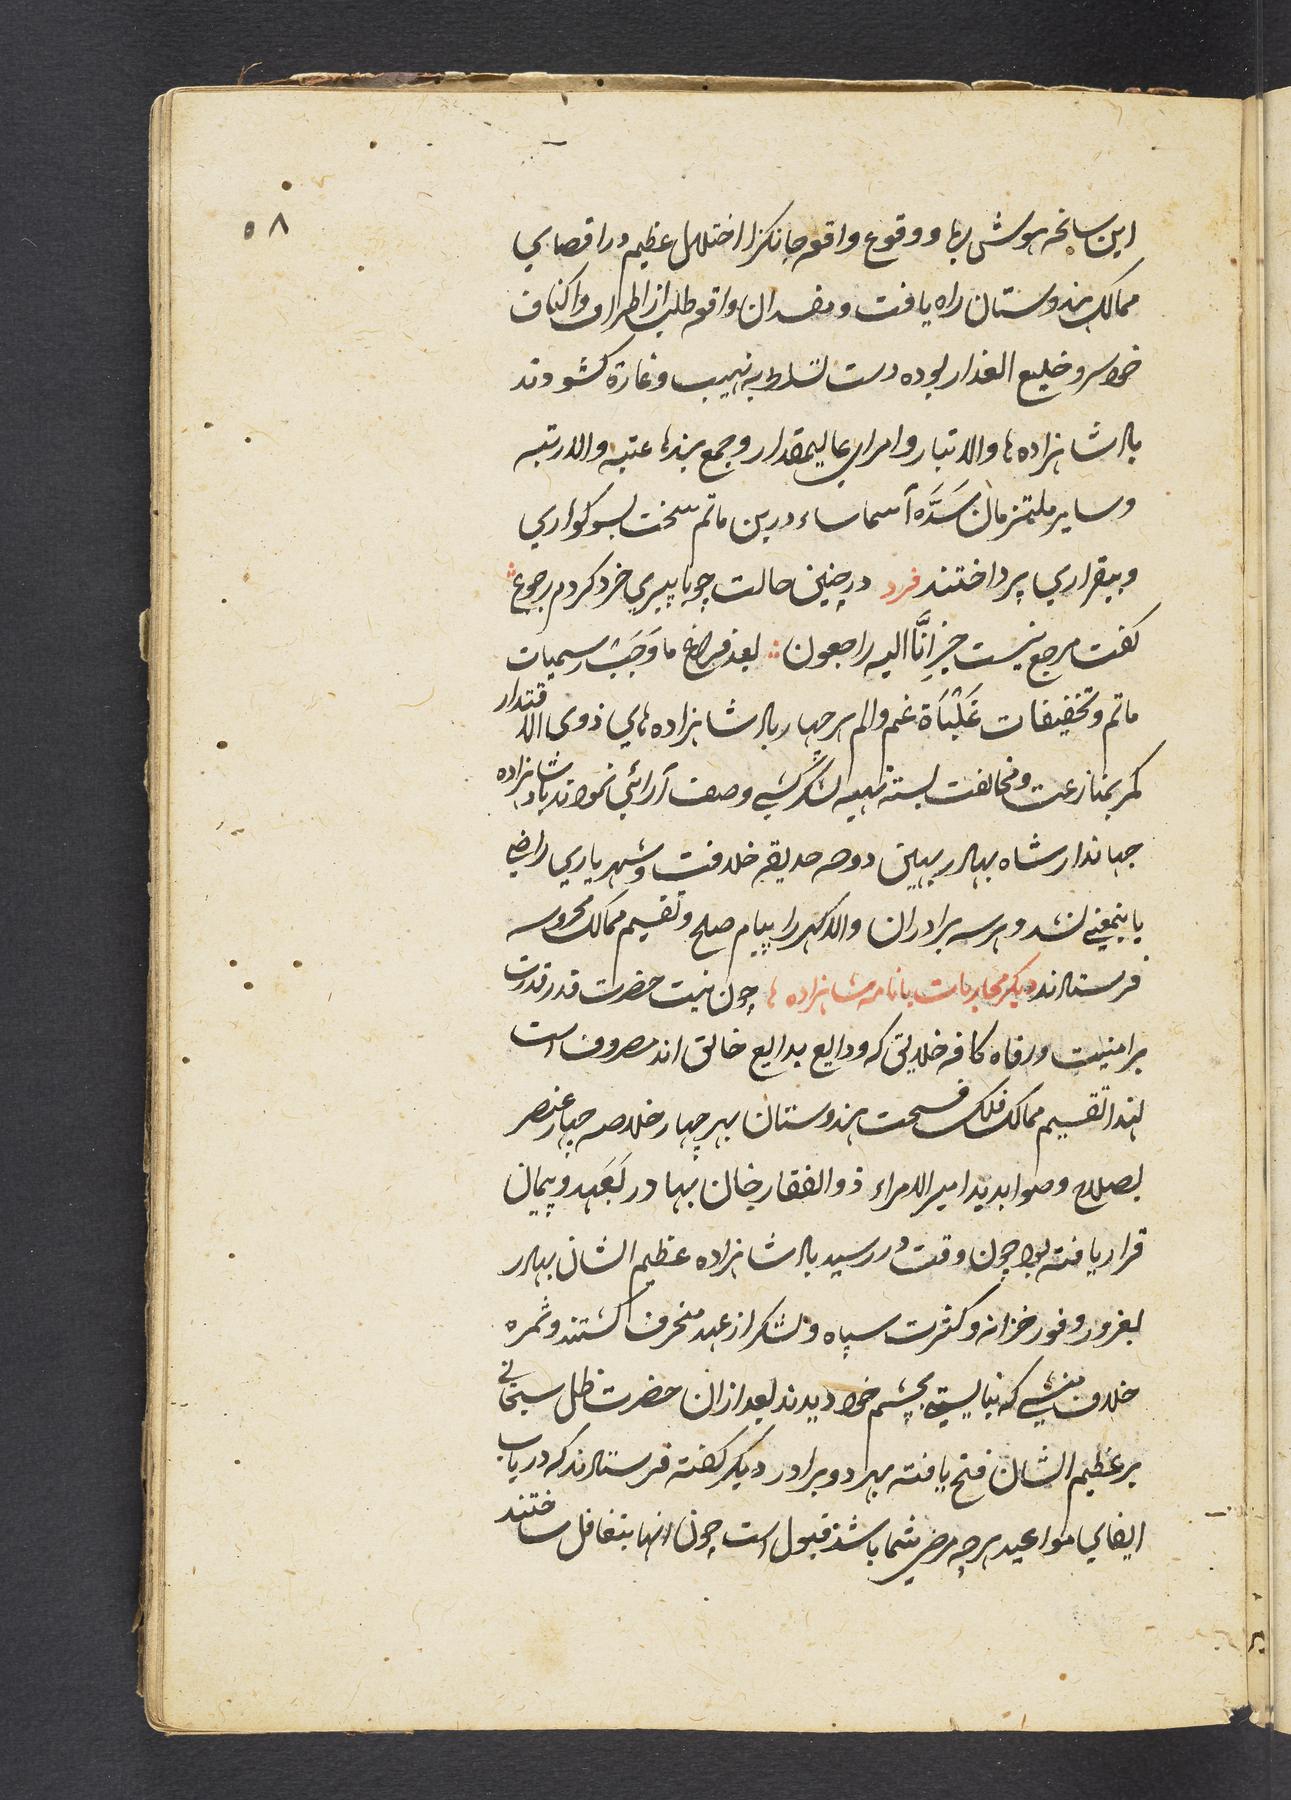 ٥٨
این سانحه هوش ربا و وقوع واقعه جانکزا اختلال عظیم در اقصای
ممالک هندوستان راه یافت و مفسدان واقعه طلب از اطراف و اکناف
خودسر و خلیع العذار بوده دست تسلط به نهیب و غارة کشودند
بادشاهزاده ها والاتبار و امرای عالیمقدار و جمع بندها عتبه والارتبه
و سایر ملتزمان سَدَّه آسماساء درین ماتم سخت بسوکواری
و بیقراری پرداختند فرد در چنین حالت چو با پیری خرد کردم رجوع
کفت مرجع نیست جز اِنَّا الیه راجعون بعد فراغ ما وَجَبَ رسمیات
ماتم و تخفیفات غم والم هر چهار بادشاهزاده های ذوی الاقتدار
کمر بمنازعت و مخالفت بسته تهیه لشکرکشی و صف آرائی نمودند بادشاهزاده
جهاندار شاه بهادر بهین دوحه حدیقه خلافت و شهریاری راضی
باینمعنی نشد و هر سه برادران والاکهر را پیام صلح و تقسیم ممالک محروسه
فرستادند دیکر محاربات با نامه شاهزاده ها چون نیت حضرت قدر قدرت
بر امنیت و رفاه کافه خلایق که ودایع بدایع خالق اند مصروف است
لهذا تقسیم ممالک فلک فسحت هندوستان بهر چهار خلاصه چهار عنصر
بصلاح و صوابدید امیر الامراء ذوالفقار خان بهادر بعَهد و پیمان
قرار یافته بود چون وقت در رسید بادشاهزاده عظیم الشان بهادر
بغرور وفور خزانه و کثرت سپاه و لشکر از عهد منحرف کشتند و ثمره
خلاف منشی که نبایستی بچشم خود دیدند بعد ازان حضرت ظل سبحانی
بر عظیم الشان فتح یافته بهر دو برادر دیکر کفته فرستادند که در باب
ایفای مواعید هرچه مرضی شما باشد قبول است چون انها بتغافل ساختند